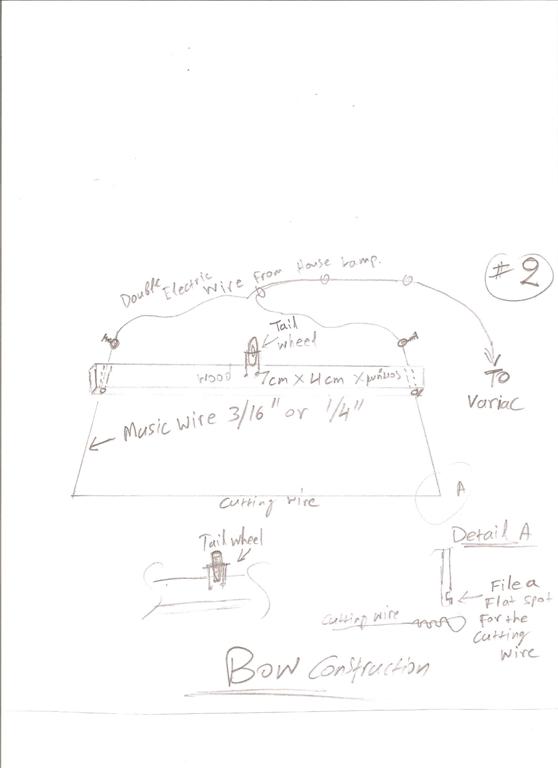 #2
Double Electric Wire From House Lamp.
Tail
wheel
TO
Variac
wood 7cm X 4cm X
Music Wire 3/16" or 1/4"
Cutting wire
A
Tail wheel
Detail A
File a
Flat spot
For the
Cutting
Wire
Cutting wire
Bow Construction